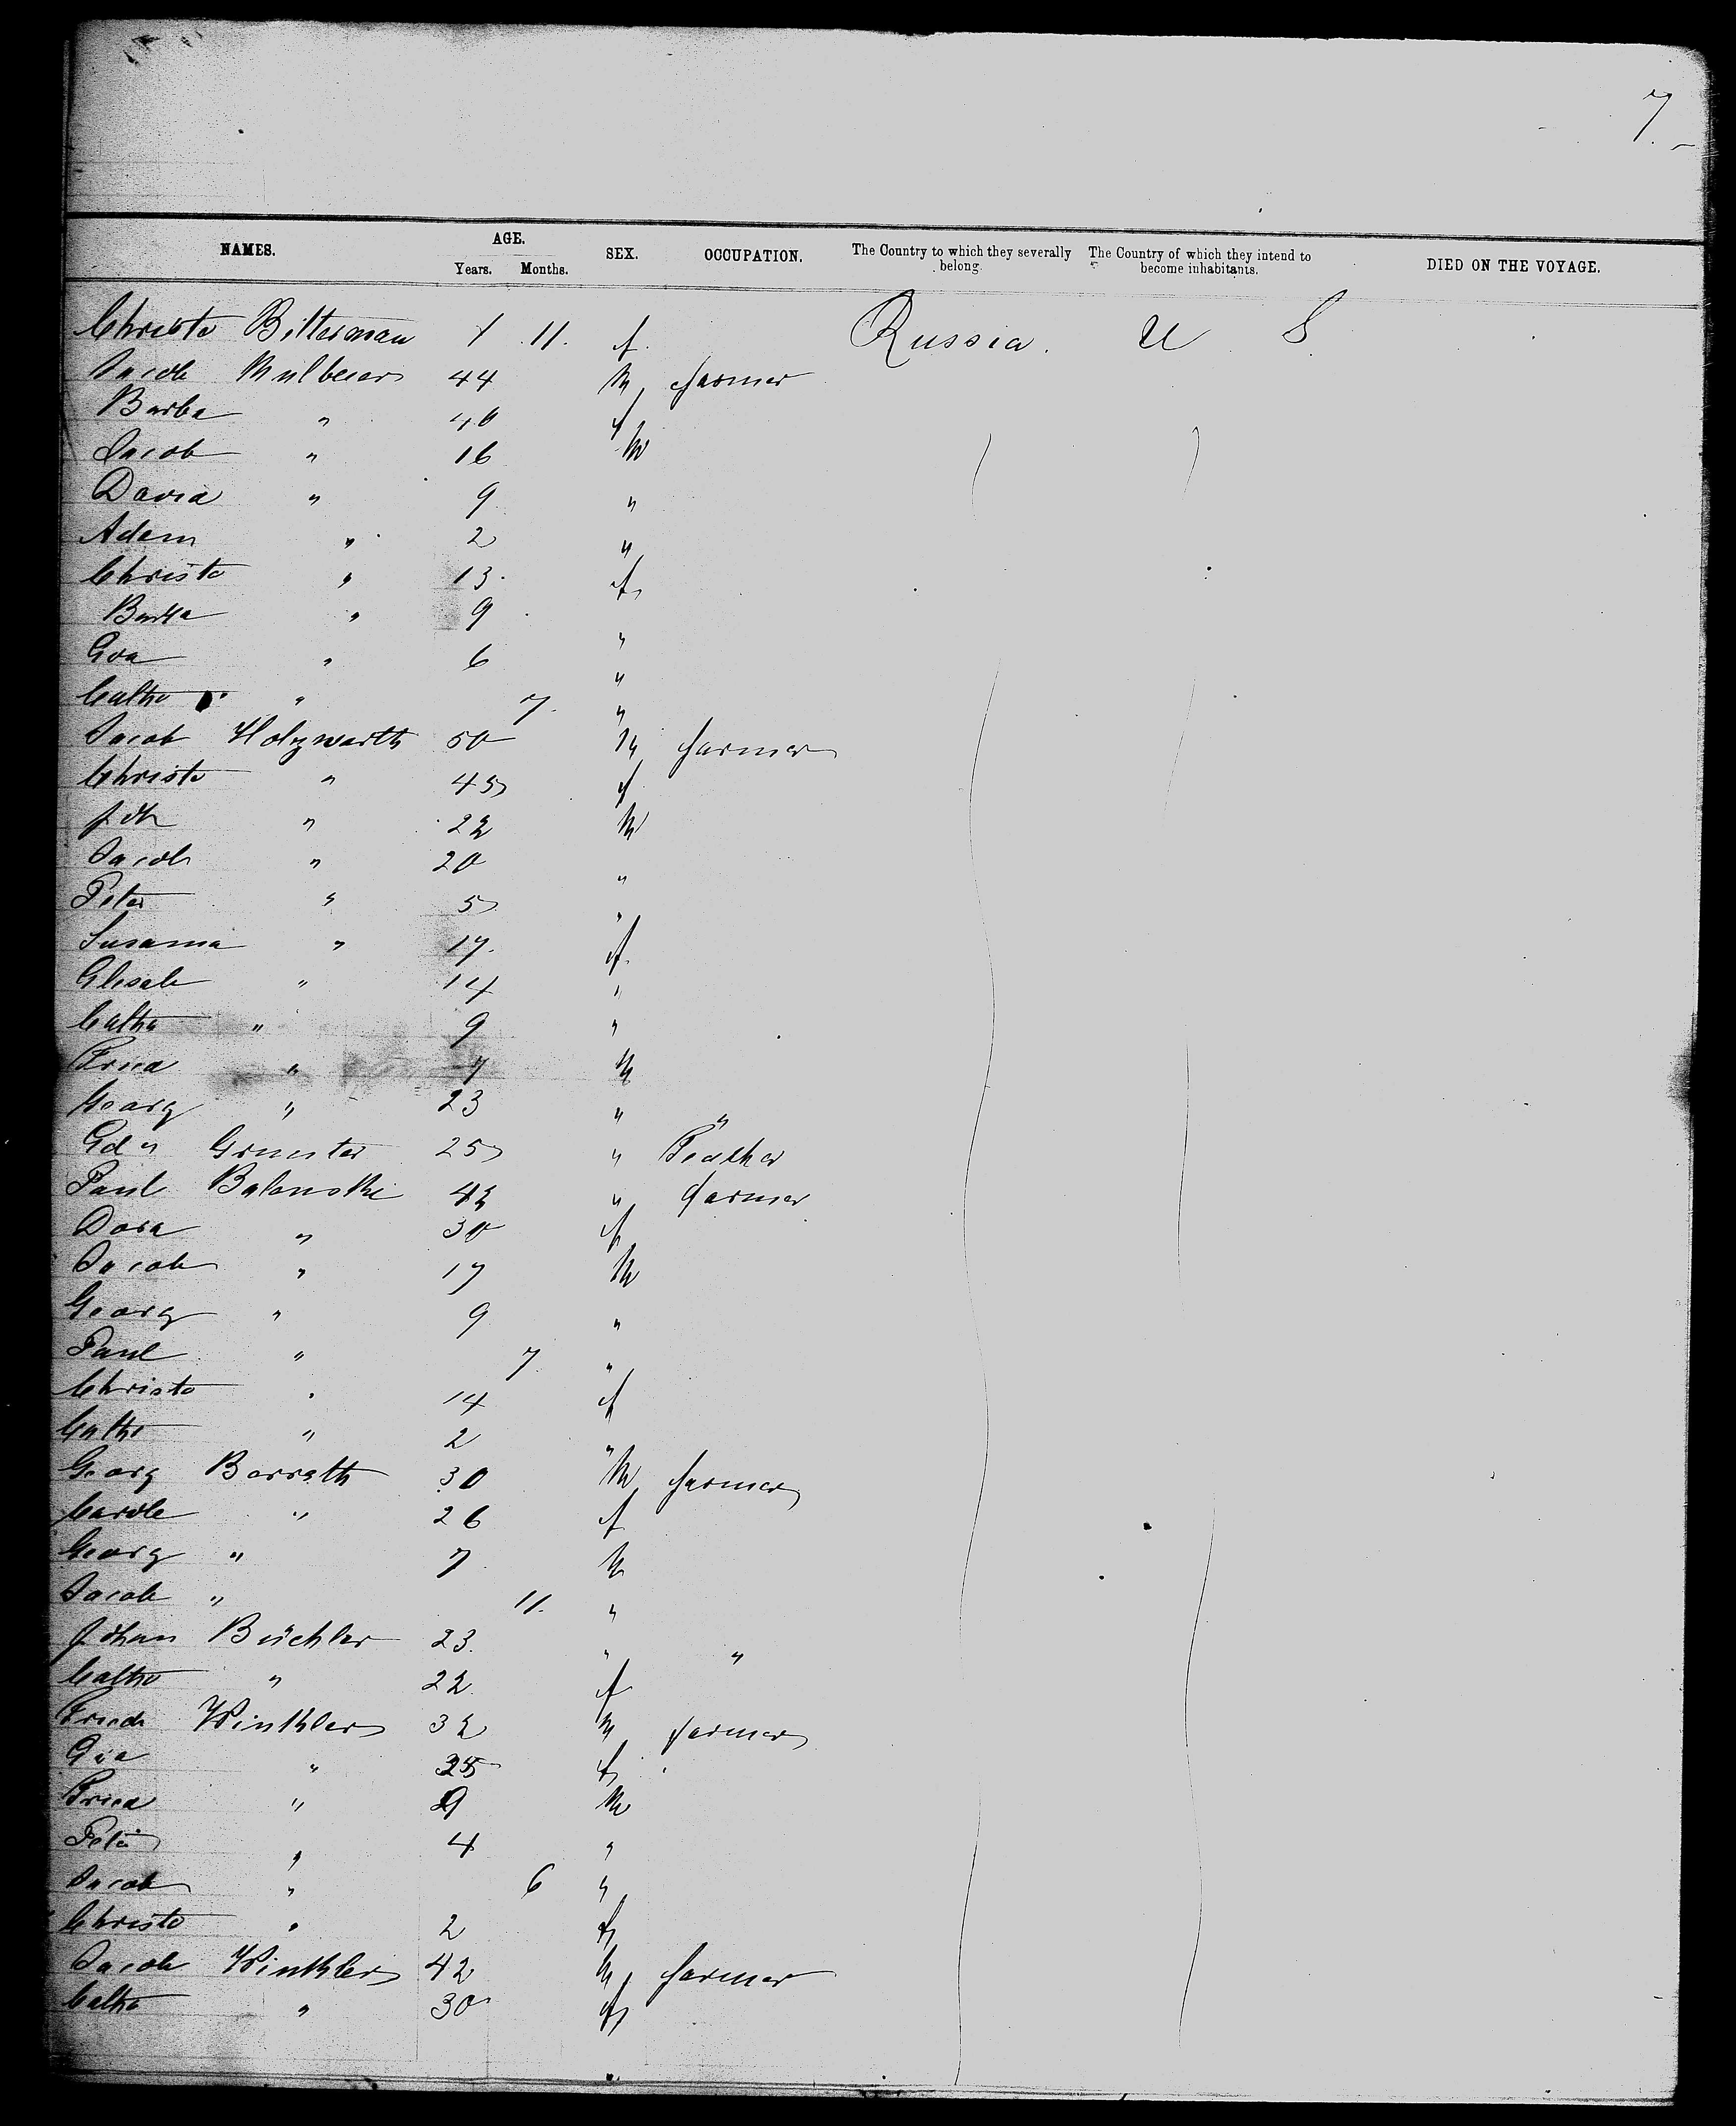 7.
NAMES. AGE. SEX. OCCUPATION. The Country to which they severally belong. The Country of which they intend to become inhabitants. DIED ON THE VOYAGE.
Years. Months.
Christe Bitterman 11. f. Russia. U S
Jacob 44 M farmer
Barba " 40 f
Jacob " 16 M
David " 9 "
Adam " 2 "
Christe " 13 f
Barba " 9 "
Eva " 6 "
Cathe " 7. "
Jacob Holzwarth 50 M farmer
Christe " 45 f
Joh " 22 M
Jacob " 20 "
Peter " 5 "
Susanna " 17 f
Elisab " 14 "
Catha " 9 "
Fried " 7 M
Georg " 23 " "
25 "
Paul 42 " farmer
Dora " 30 f
Jacob " 17 M
Georg " 9 "
Paul " 7 "
Christe " 14 f
Cathe " 2 "
Georg Barrath 30 M farmer
Carole " 26 f
Georg " 7 M
Jacob " 11. "
Johan Büchler 23. " "
Cathe " 22 f
Friedr Winkler 32 M farmer
Eva " 25 f
Fried " 9 M
Peter " 4 "
Jacob " 6 "
Christe " 2 f
Jacob Winkler 42 M farmer
Catha " 30 f